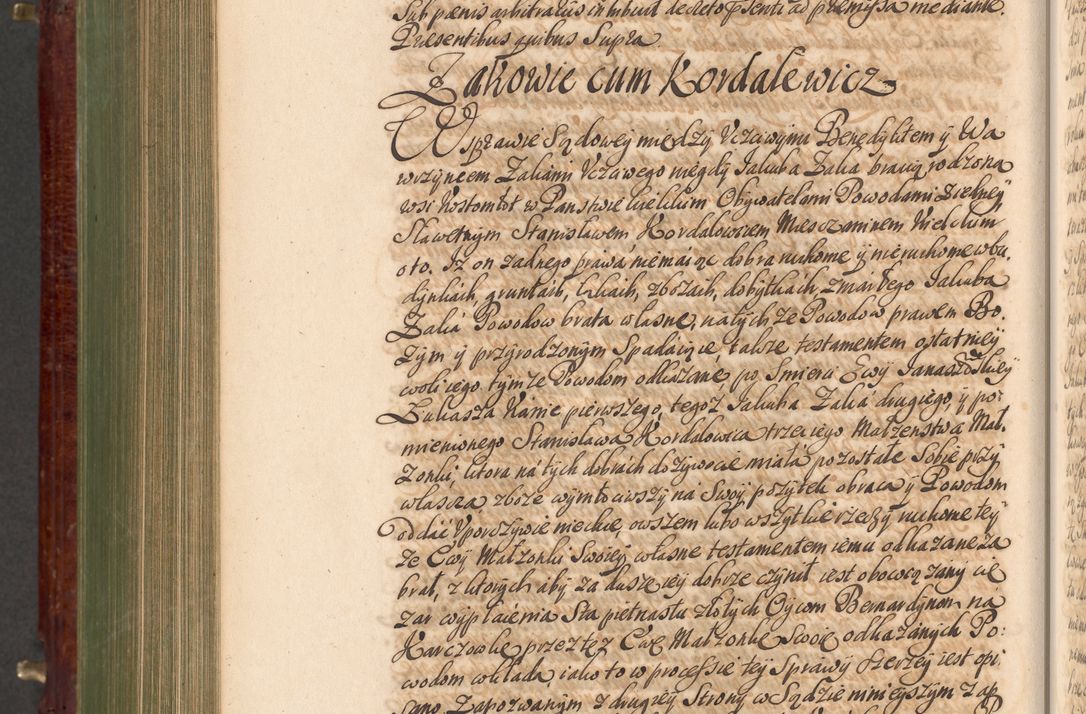 Sub pænis arbitrariis in hibuit decreto pñti ad præmissa mediante.
Præsentibus quibus Supra.
Zakowie cum Kordalewicz
W sprawie Sądowey między Vczciwymi Benedyktem y Wa
wrzyńcem Zakami Vczciwego niegdy Jakuba Zaka bracią rodzoną
wsi Kostomłot w Panstwie kieleckim Obywatelami Powodami z iedney
Sławetnym Stanisławem Kordalowicem Mieszczaninem Kieleckim
oto. Iż on żadnego prawa niemaiąc dobra ruchome y nieruchome w bu.
dynkach, gruntach, łąkach, zbożach, dobytkach, zmarłego Jakuba
Zaka Powodow brata własne, na tychże Powodow prawem Bo.
żym y przyrodzonym Spadaiące, także testamentem ostatniey
woli iego tymże Powodom odkazane, po Smierci Ewy
Łukasza Kanie pierwszego, tegoż Jakuba Zaka drugiego, y po:
mienionego Stanisława Kordalowica trzeciego Małżenstwa Mał.
żonki, ktora na tych dobrach dożywocie miała pozostałe Sobie przy
własza, zboże wymłociwszy na Swoy pożytek obraca y Powodom
oddać Vporczywie niechce, owszem lubo wszytkie rzeczy ruchome tey
że Ewy Małżonki Swoiey własne testamentem iemu odkazane za
brał, z ktorych aby za duszę iey dobrze czynił iest obowiązany cię
żar wypłacenia Sta piętnastu złotych Oycom Bernardynom na
Karczowke przez też Ewę Małżonkę Swoię odkazanych Po:
wodom wkłada, iako to w processie tey Sprawy szerzey iest opi
sano Zapozwanym z drugiey Strony w Sądzie ninieyszym Zap